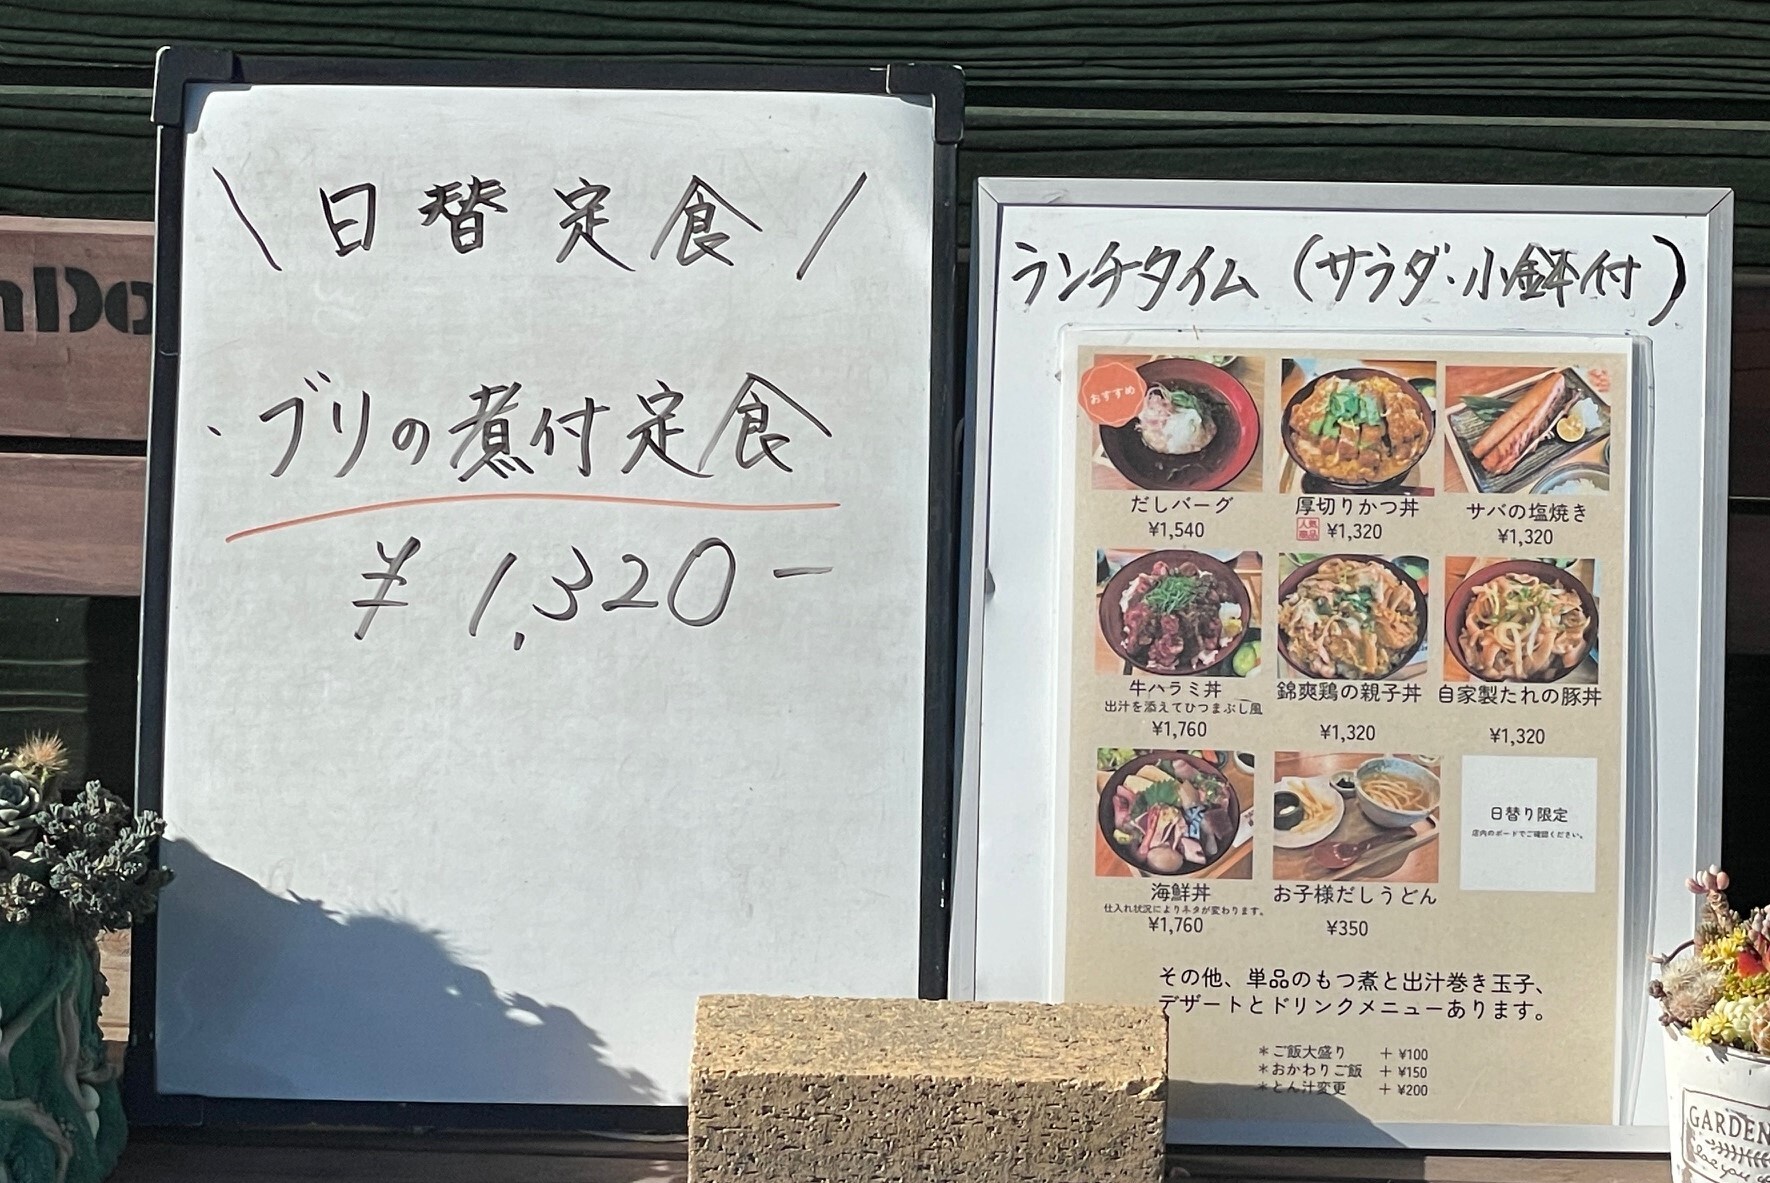 \ 日替定食 /
・ブリの煮付定食
¥1,320-
ランチタイム(サラダ・小鉢付)
おすすめ
だしバーグ
¥1,540
厚切りかつ丼
人気商品 ¥1,320
サバの塩焼き
¥1,320
牛ハラミ丼
出汁を添えてひつまぶし風
¥1,760
錦爽鶏の親子丼
¥1,320
自家製たれの豚丼
¥1,320
海鮮丼
仕入れ状況によりネタが変わります。
¥1,760
お子様だしうどん
¥350
日替り限定
店内のボードでご確認ください。
その他、単品のもつ煮と出汁巻き玉子、
デザートとドリンクメニューあります。
*ご飯大盛り +¥100
*おかわりご飯 +¥150
*とん汁変更 +¥200
GARDEN